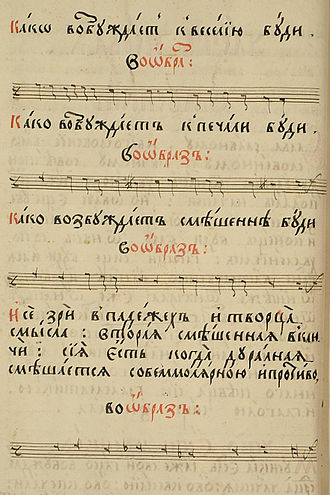 Како возбуждаетъ к веселїю буди.
Во ѡбра:
Како возбуждаетъ к печали буди.
Во ѡбразъ:
Како возбуждаетъ смѣшеннѣ буди
Во ѡбразъ:
И се зри в падежехъ и творца
смысла: вторая смѣшенная
чи: сїя есть когда дуралная
смѣшается со бемолярною и
во ѡбразъ: